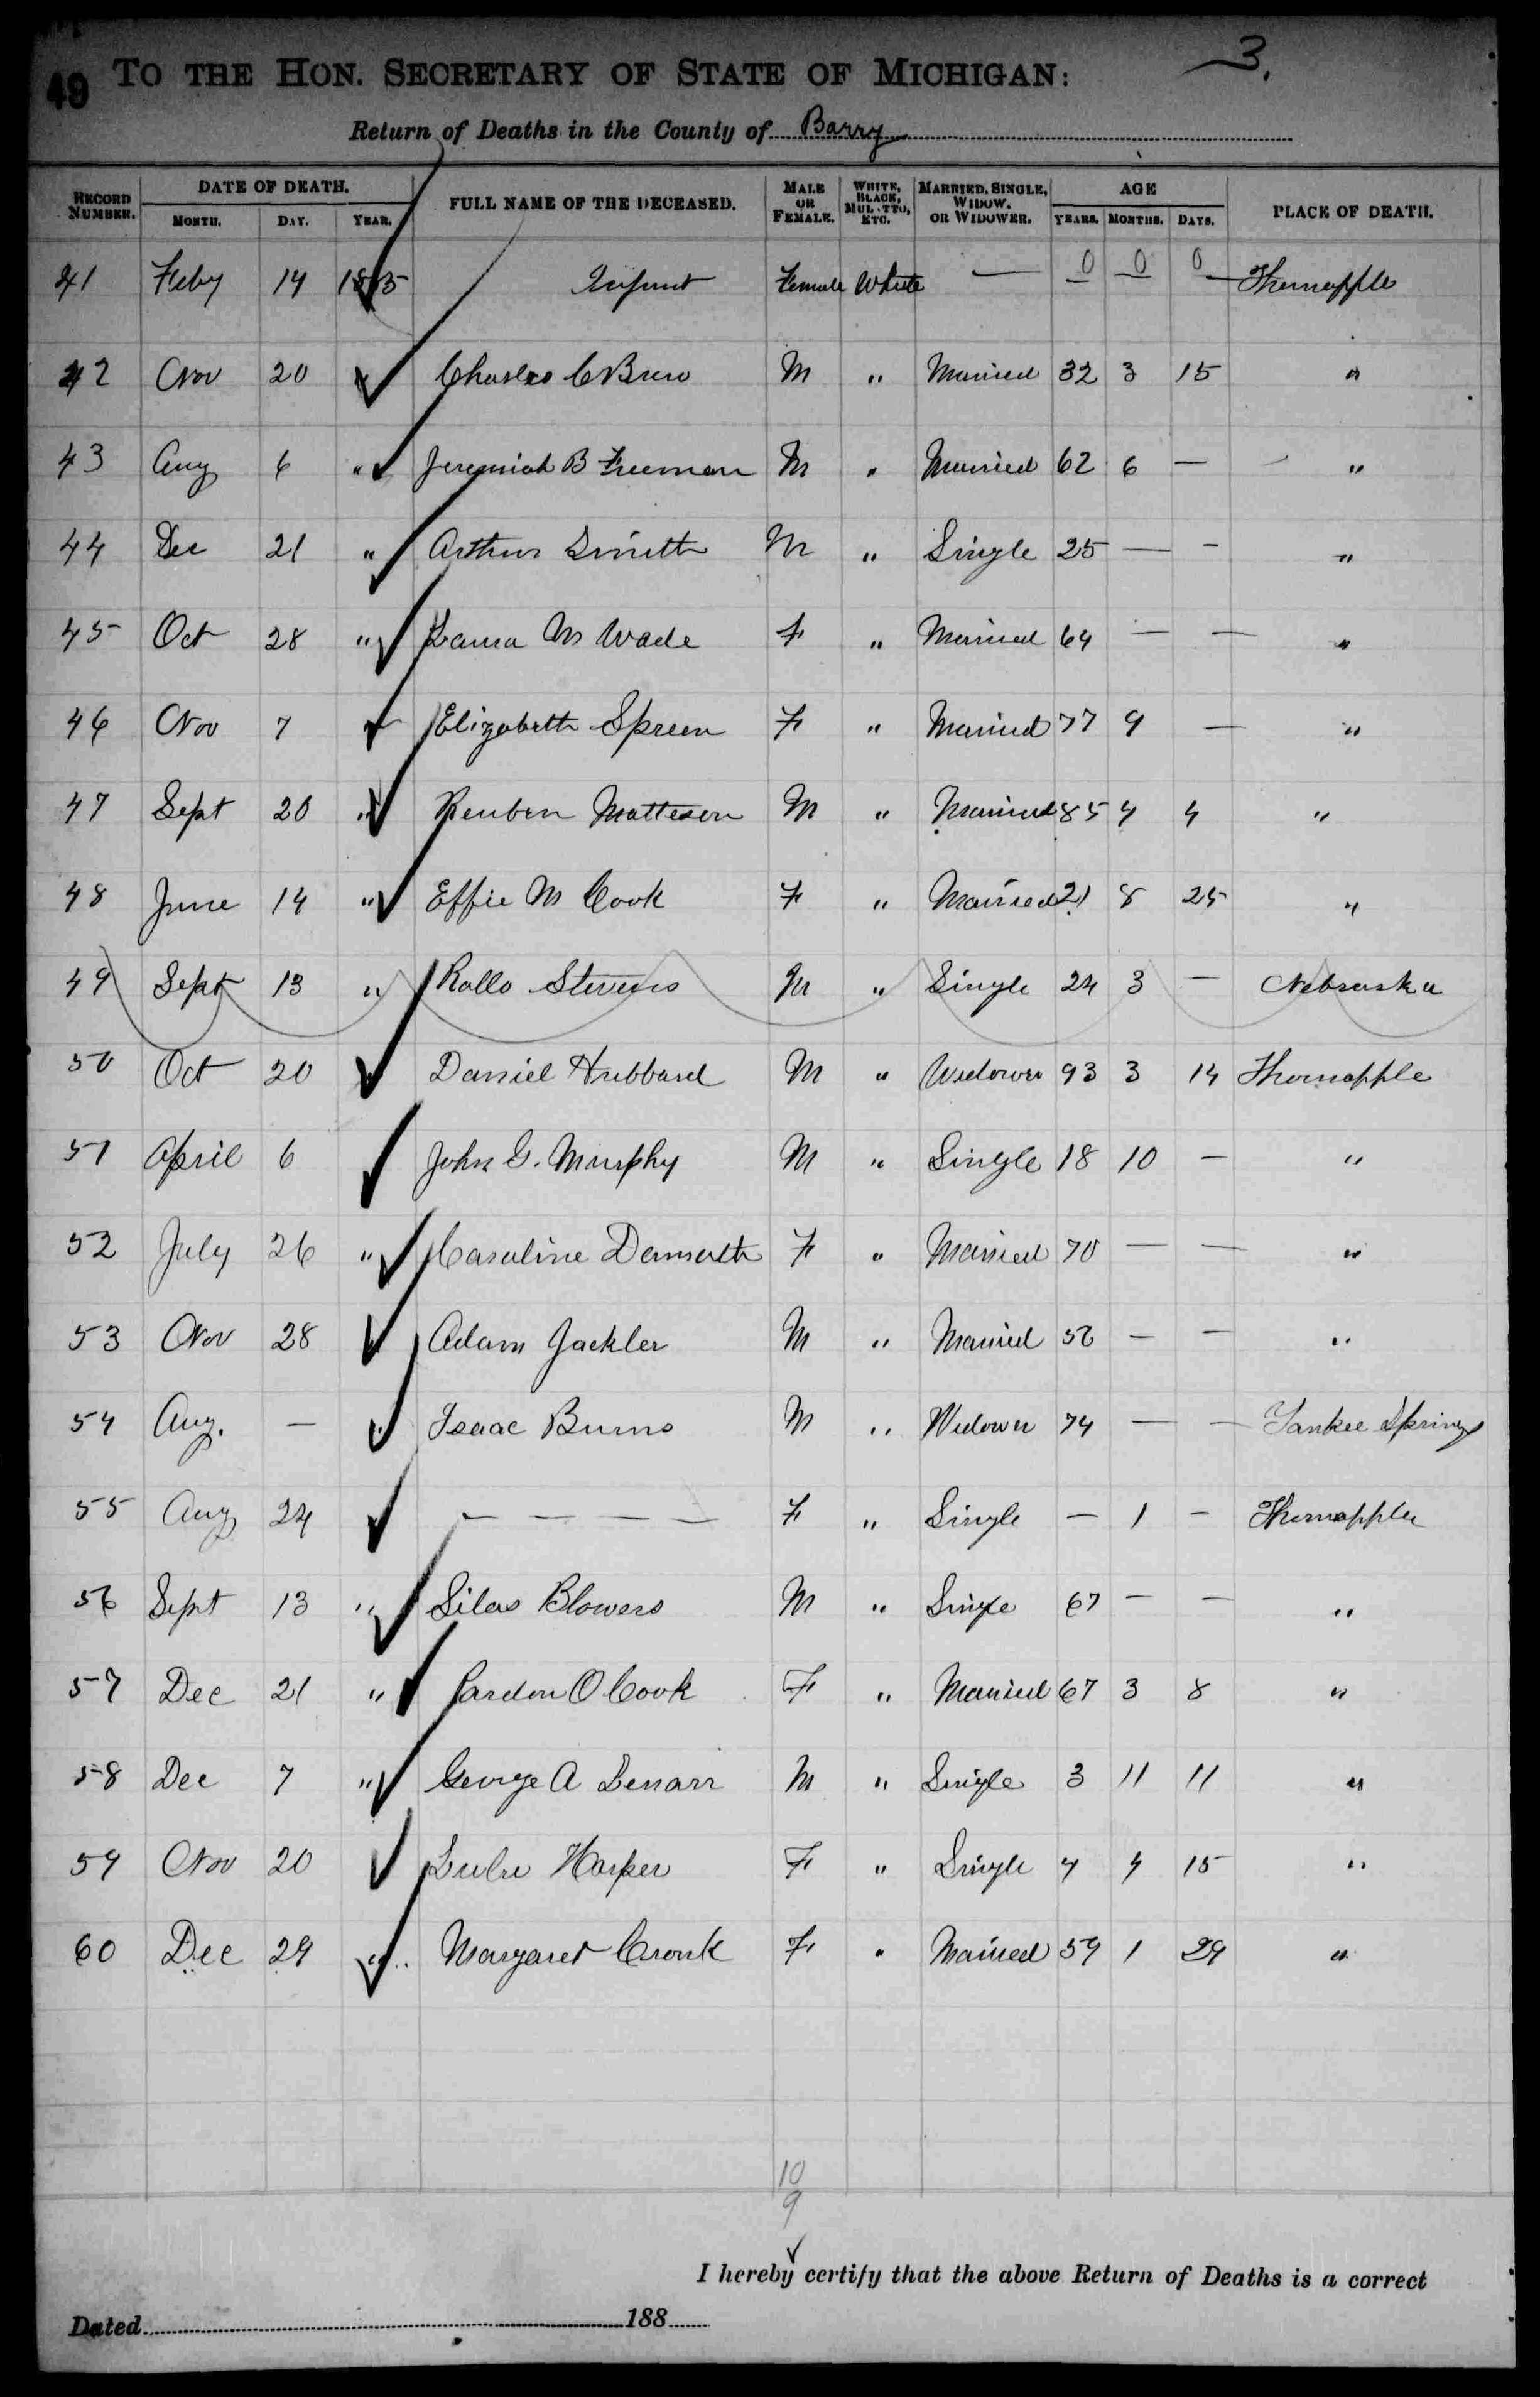 49 TO THE HON. SECRETARY OF STATE OF MICHIGAN: 3.
Return of Deaths in the County of Barry
RECORD NUMBER. DATE OF DEATH. MONTH. DAY. YEAR. FULL NAME OF THE DECEASED. MALE OR FEMALE. WHITE, BLACK, MULATTO, ETC. MARRIED, SINGLE, WIDOW, OR WIDOWER. AGE YEARS. MONTHS. DAYS. PLACE OF DEATH.
41 Feby 14 1885 Infant Female White — 0 0 0 Thornapple
42 Nov 20 " Charles M " Married 32 3 15 "
43 Aug 6 " Jeremiah B Freeman M " Married 62 6 — "
44 Dec 21 " Arthur Smith M " Single 25 — — "
45 Oct 28 " Laura M Wade F " Married 64 — — "
46 Nov 7 " Elizabeth Spreen F " Married 77 9 — "
47 Sept 20 " Reuben Matteson M " Married 85 4 4 "
48 June 14 " Effie M Cook F " Married 21 8 25 "
49 Sept 13 " Rollo Stevens M " Single 24 3 — Nebraska
50 Oct 20 Daniel Hubbard M " Widower 93 3 14 Thornapple
51 April 6 John G. Murphy M " Single 18 10 — "
52 July 26 " Caroline Demorth F " Married 70 — — "
53 Nov 28 Adam Jackler M " Married 56 — — "
54 Aug. — " Isaac Burns M " Widower 74 — — Yankee Springs
55 Aug 24 — — — — F " Single — 1 — Thornapple
56 Sept 13 " Silas Blowers M " Single 67 — — "
57 Dec 21 " Pardon O Cook F " Married 67 3 8 "
58 Dec 7 " George A Lenarr M " Single 3 11 11 "
59 Nov 20 Harper F " Single 4 4 15 "
60 Dec 29 " Margaret Cronk F " Married 59 1 29 "
10
9
I hereby certify that the above Return of Deaths is a correct
Dated 188